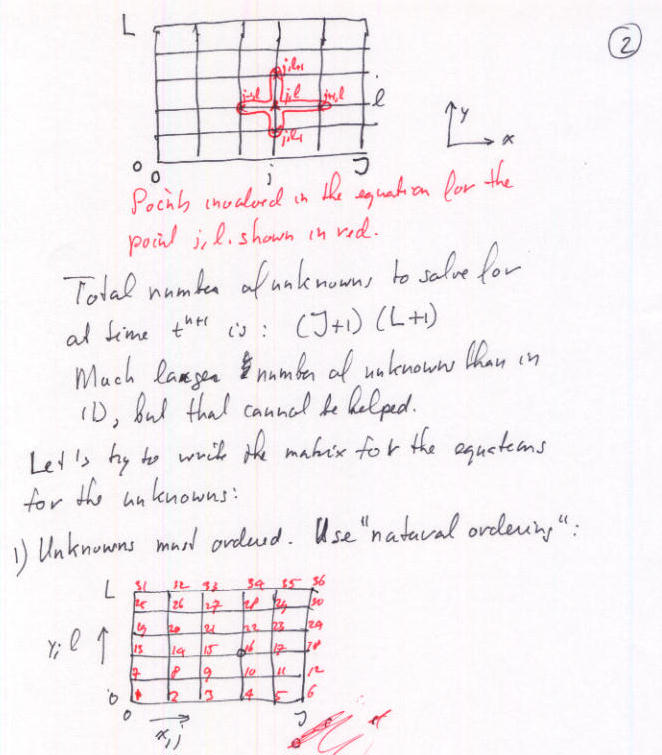 2
L
j,l+1
j-1,l j,l j+1,l
l
y
x
0
0 j J
Points involved in the equation for the
point j, l. shown in red.
Total number of unknowns to solve for
at time t^n+1 is : (J+1) (L+1)
Much larger number of unknowns than in
1D, but that cannot be helped.
Let's try to write the matrix for the equations
for the unknowns:
1) Unknowns must ordered. Use "natural ordering":
L 31 32 33 34 35 36
25 26 27 28 29 30
19 20 21 22 23 24
y, l 13 14 15 16 17 18
7 8 9 10 11 12
0 1 2 3 4 5 6
0 J
x, j